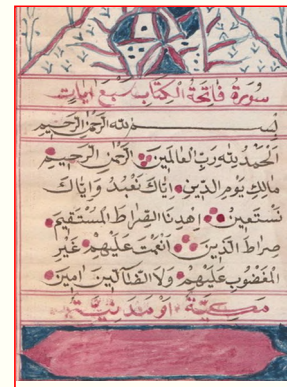 سورة فاتحة الكتاب سبع ايات
بسم الله الرحمن الرحيم
الحمد لله رب العالمين الرحمن الرحيم
مالك يوم الدين اياك نعبد واياك
نستعين اهدنا الصراط المستقيم
صراط الذين انعمت عليهم غير
المغضوب عليهم ولا الضالين امين
مكية او مدنية